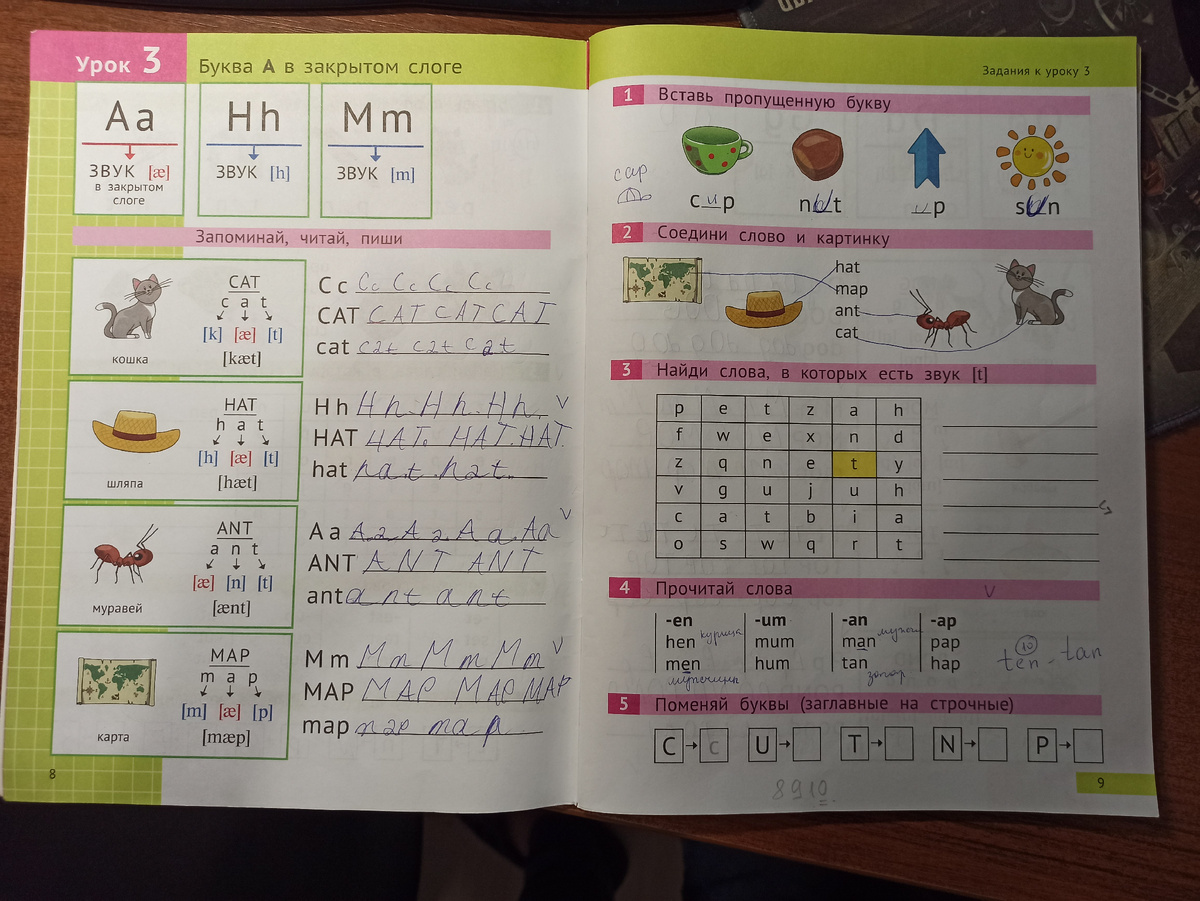 Урок 3
Буква А в закрытом слоге
Aa
ЗВУК [æ]
в закрытом
слоге
Hh
ЗВУК [h]
Mm
ЗВУК [m]
Запоминай, читай, пиши
CAT
c a t
[k] [æ] [t]
[kæt]
кошка
Cc Cc Cc Cc Cc
CAT CAT CAT CAT
cat cat cat cat
HAT
h a t
[h] [æ] [t]
[hæt]
шляпа
Hh Hh. Hh. Hh. V
HAT HAT. HAT. HAT.
hat hat hat.
ANT
a n t
[æ] [n] [t]
[ænt]
муравей
Aa Aa Aa Aa Aa V
ANT ANT ANT
ant ant ant
MAP
m a p
[m] [æ] [p]
[mæp]
карта
Mm Mm Mm Mm V
MAP MAP MAP MAP
map map map
8
Задания к уроку 3
1 Вставь пропущенную букву
cap
cup
nut
up
sun
2 Соедини слово и картинку
hat
map
ant
cat
3 Найди слова, в которых есть звук [t]
p e t z a h
f w e x n d
z q n e t y
v g u j u h
c a t b i a
o s w q r t
4 Прочитай слова
V
-en
hen курица
men
мужчины
-um
mum
hum
-an
man
tan
загар
-ap
pap
hap
10
ten - tan
5 Поменяй буквы (заглавные на строчные)
C → c U → T → N → P →
8910.
9